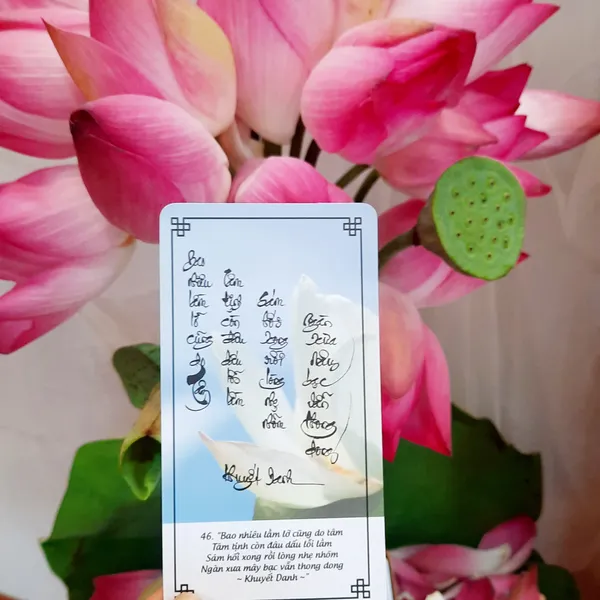 Bao
nhiêu
lầm
lỡ
cũng
do
tâm
Tâm
tịnh
còn
đâu
dấu
tối
lầm
Sám
hối
xong
rồi
lòng
nhẹ
nhõm
Ngàn
xưa
mây
bạc
vẫn
thong
dong
Khuyết Danh
46. "Bao nhiêu lầm lỡ cũng do tâm
Tâm tịnh còn đâu dấu tối lầm
Sám hối xong rồi lòng nhẹ nhõm
Ngàn xưa mây bạc vẫn thong dong
~ Khuyết Danh ~"